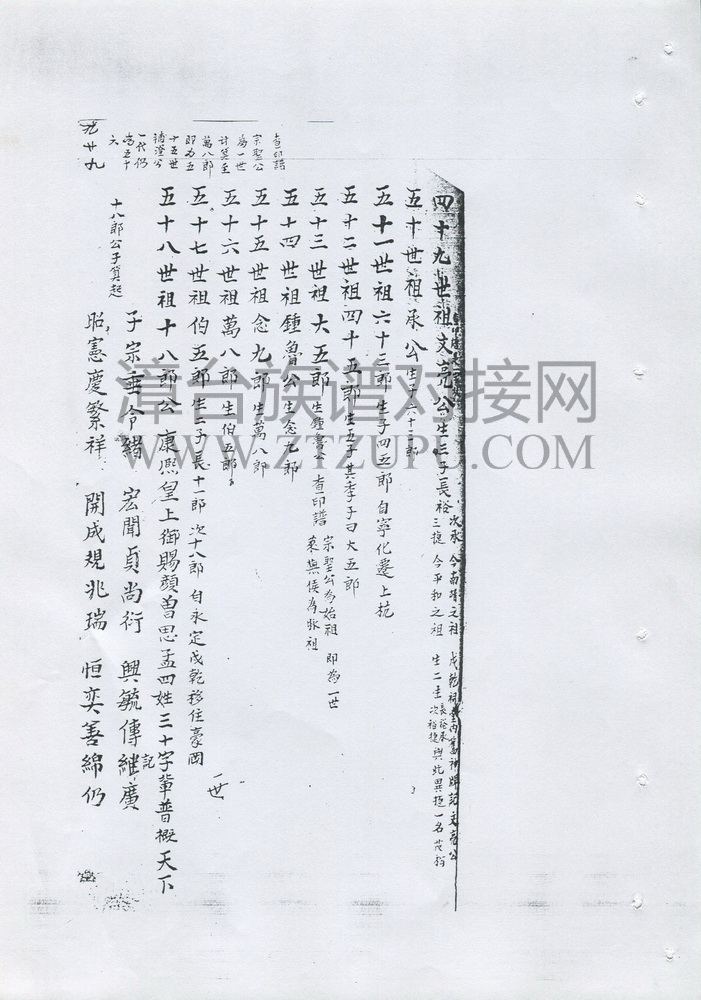 四十九世祖文亮公生三子長裕
次承 今南靖之祖
三捷 今平和之祖
戊乾祠堂內舊神牌記文亮公
五十世祖承公生六十三郎
五十一世祖六十三郎生子四五郎自寧化遷上杭
五十二世祖四十五郎生五子其季子曰大五郎
五十三世祖大五郎生鍾魯公查印譜
宗聖公為始祖 即為一世
萊蕪侯為脉祖
五十四世祖鍾魯公生念九郎
五十五世祖念九郎生萬八郎
五十六世祖萬八郎生伯五郎
五十七世祖伯五郎生二子長十一郎次十八郎自永定戊乾移住豪岡
一世
五十八世祖十八郎公康熙皇上御賜顏曾思孟四姓三十字輩普概天下
記
十八郎公子算起
子宗垂令緒 宏聞貞尚衍 興毓傳繼廣
昭憲慶繁祥 開成規兆瑞 恒奕善綿仍
查印譜
宗聖公
為一世
計算至
萬八郎
即为五
十五世
一代仍
當五十
六
廿九
漳台族谱对接网
WWW.ZTZUPU.COM